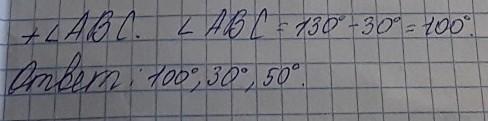 +∠ABC. ∠ABC = 130° - 30° = 100°.
Ответ: 100°, 30°, 50°.